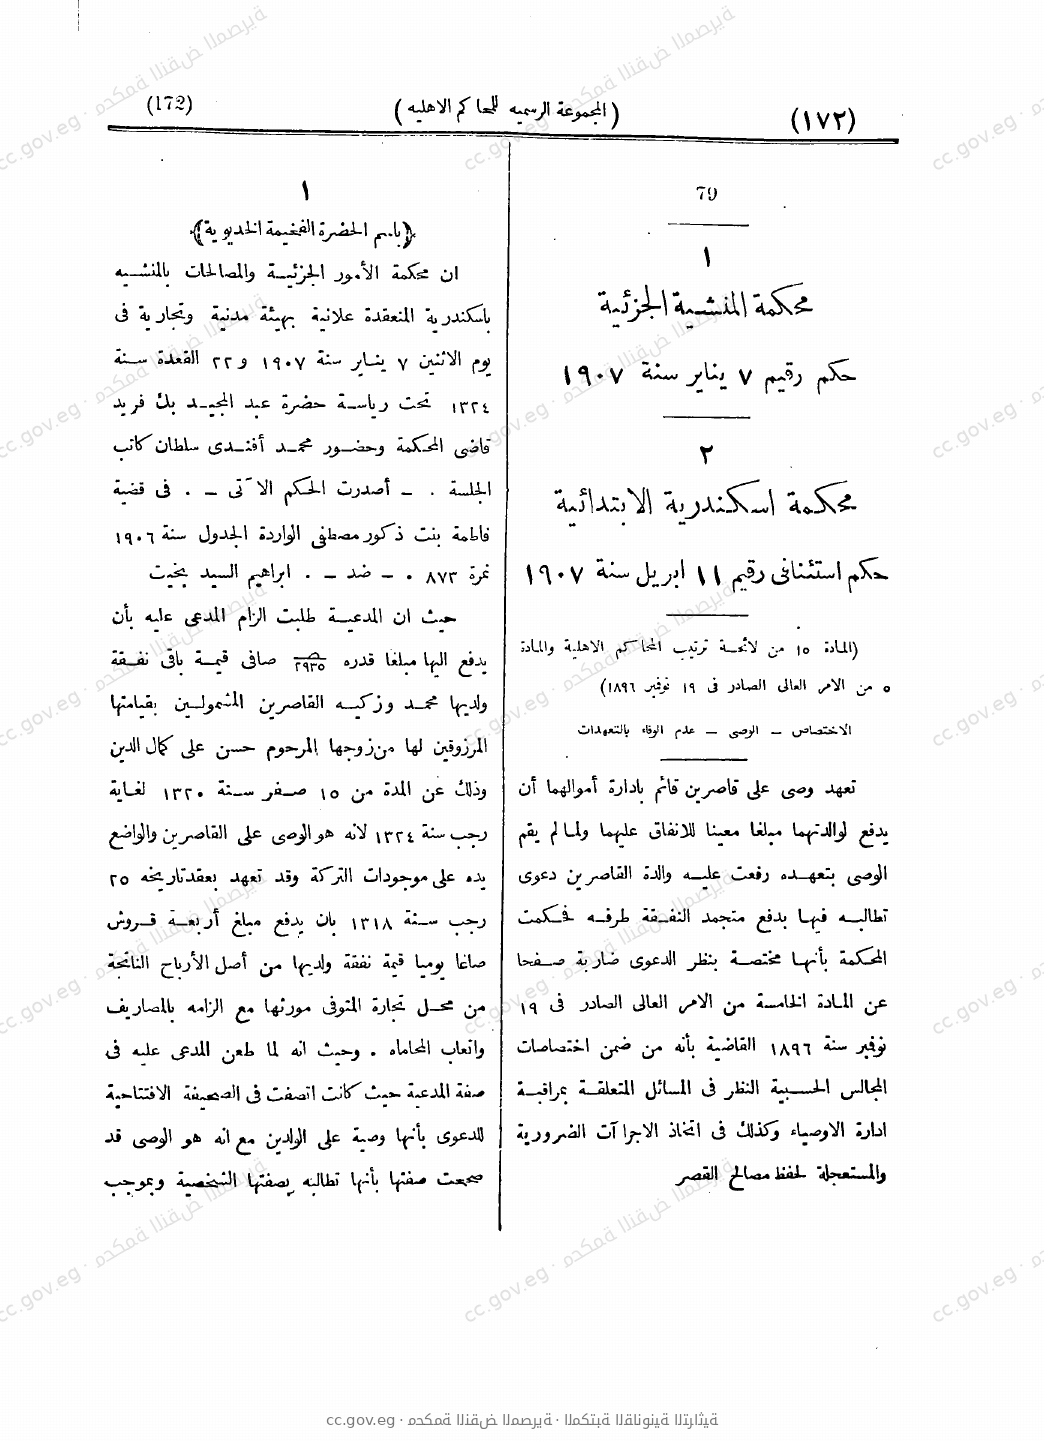 (١٧٢)
(المجموعة الرسميه للمحاكم الاهليه)
(172)
79
١
محكمة المنشية الجزئية
حكم رقيم ٧ يناير سنة ١٩٠٧
٢
محكمة اسكندرية الابتدائية
حكم استئنافى رقيم ١١ ابريل سنة ١٩٠٧
(المادة ١٥ من لائحة ترتيب المحاكم الاهلية والمادة
٥ من الامر العالى الصادر فى ١٩ نوفمبر ١٨٩٦)
الاختصاص – الوصى – عدم الوفاء بالتعهدات
تعهد وصى على قاصرين قائم بادارة أموالهما أن
يدفع لوالدتهما مبلغا معينا للانفاق عليهما ولما لم يقم
الوصى بتعهده رفعت عليه والدة القاصرين دعوى
تطالبه فيها بدفع متجمد النفقة طرفه فحكمت
المحكمة بأنها مختصة بنظر الدعوى ضاربة صفحا
عن المادة الخامسة من الامر العالى الصادر فى ١٩
نوفمبر سنة ١٨٩٦ القاضية بأنه من ضمن اختصاصات
المجالس الحسبية النظر فى المسائل المتعلقة بمراقبة
ادارة الاوصياء وكذلك فى اتخاذ الاجراآت الضرورية
والمستعجلة لحفظ مصالح القصر
١
﴿باسم الحضرة الفخيمة الخديوية﴾
ان محكمة الأمور الجزئية والمصالحات بالمنشيه
باسكندرية المنعقدة علانية بهيئة مدنية وتجارية فى
يوم الاثنين ٧ يناير سنة ١٩٠٧ و٢٢ القعدة سنة
١٣٢٤ تحت رياسة حضرة عبد المجيد بك فريد
قاضى المحكمة وحضور محمد أفندى سلطان كاتب
الجلسة . – أصدرت الحكم الآتى – . فى قضية
فاطمة بنت ذكور مصطفى الواردة الجدول سنة ١٩٠٦
نمرة ٨٧٣ . – ضد – . ابراهيم السيد بخيت
حيث ان المدعية طلبت الزام المدعى عليه بأن
يدفع اليها مبلغا قدره ٢٩٣٥ صافى قيمة باقى نفقة
ولديها محمد وزكيه القاصرين المشمولين بقيامتها
المرزوقين لها من زوجها المرحوم حسن على كمال الدين
وذلك عن المدة من ١٥ صفر سنة ١٣٢٠ لغاية
رجب سنة ١٣٢٤ لانه هو الوصى على القاصرين والواضع
يده على موجودات التركة وقد تعهد بعقد تاريخه ٢٥
رجب سنة ١٣١٨ بان يدفع مبلغ أربعة قروش
صاغا يوميا قيمة نفقة ولديها من أصل الأرباح الناتجة
من محل تجارة المتوفى مورثها مع الزامه بالمصاريف
واتعاب المحاماه . وحيث انه لما طعن المدعى عليه فى
صفة المدعية حيث كانت اتصفت فى الصحيفة الافتتاحية
للدعوى بأنها وصية على الولدين مع انه هو الوصى قد
صححت صفتها بأنها تطالبه بصفتها الشخصية وبموجب
cc.gov.eg · محكمة النقض المصرية · المكتبة القانونية التراثية